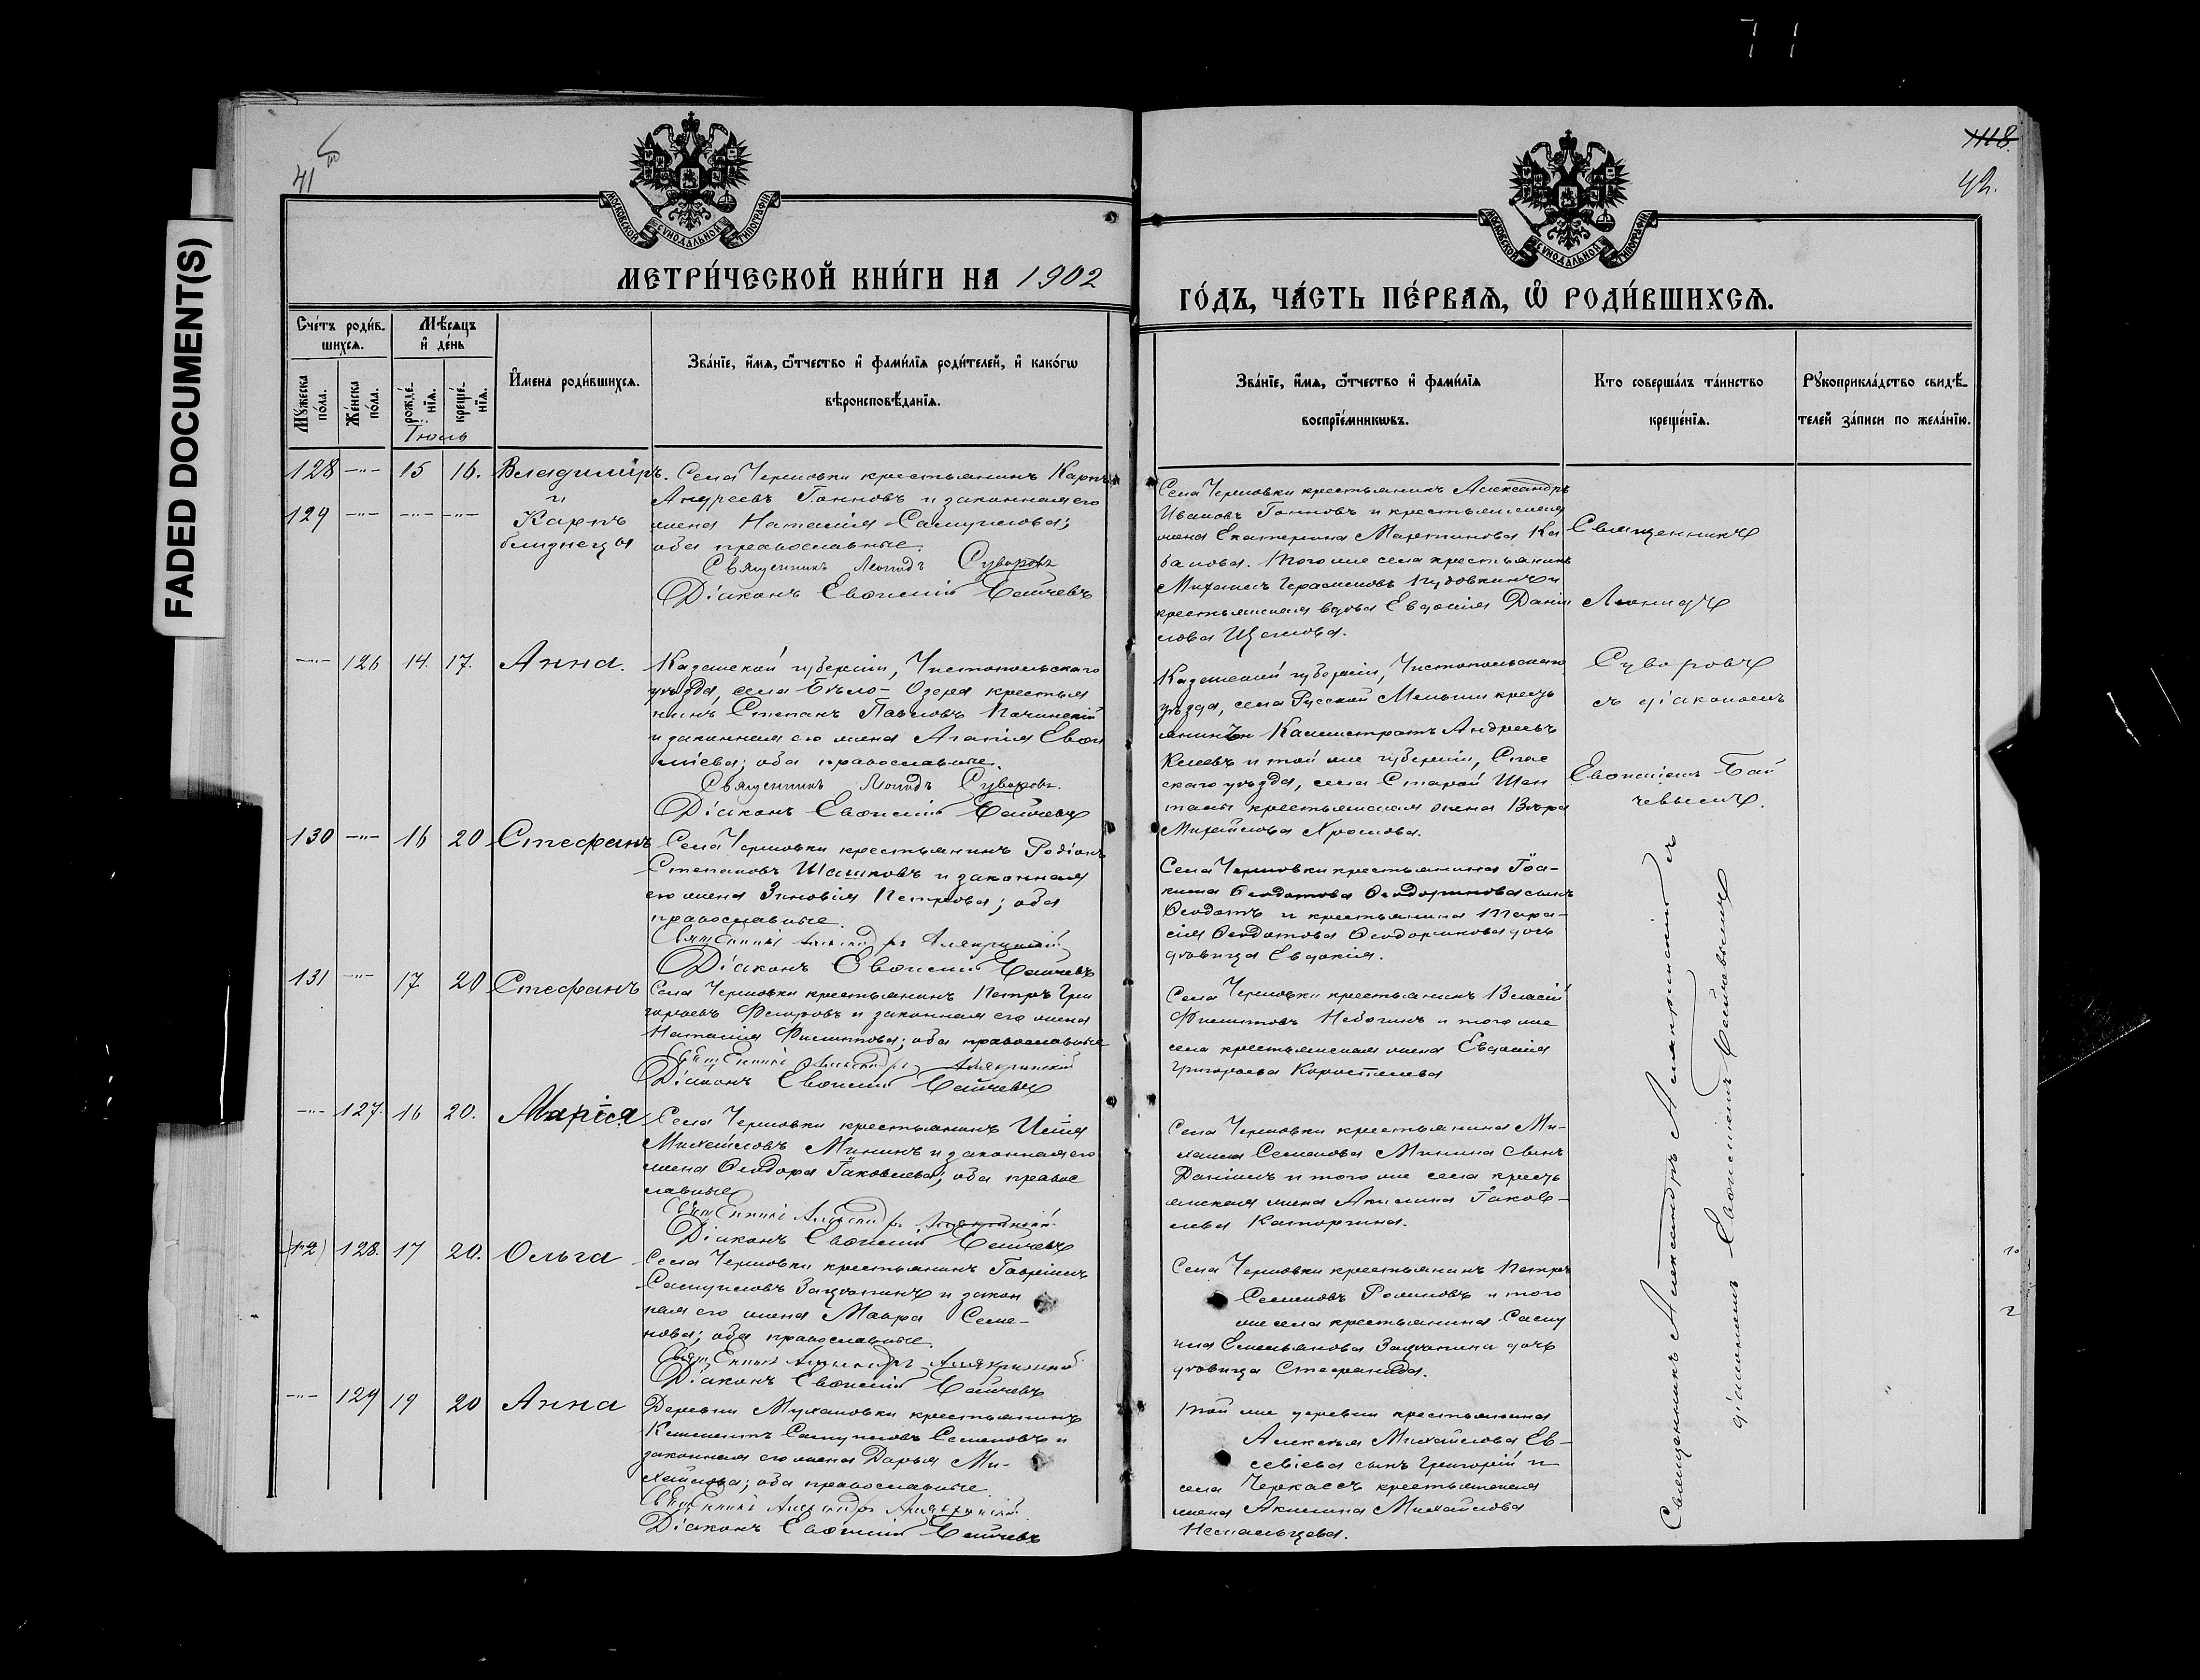 71
FADED DOCUMENT(S)
41
1118.
42.
МОСКОВСКОЙ СѴНОДАЛЬНОЙ ТИПОГРАФІИ
МОСКОВСКОЙ СѴНОДАЛЬНОЙ ТИПОГРАФІИ
МЕТРИ́ЧЕСКОЙ КНИ́ГИ НА 1902
ГО́ДЪ, ЧА́СТЬ ПЕ́РВАѦ, Ѡ҆ РОДИ́ВШИХСѦ.
Сче́тъ роди́в-
шихсѧ.
Мѣ́сѧцъ
и҆ де́нь
Мꙋ́жеска по́ла.
Же́нска по́ла.
рожде́-нїѧ.
креще́-нїѧ.
И҆мена роди́вшихсѧ.
Зва́нїе, и҆́мѧ, ѻ҆́тчество и҆ фами́лїѧ роди́телей, и҆ како́гѡ
вѣроисповѣ́данїѧ.
Зва́нїе, и҆́мѧ, ѻ҆́тчество и҆ фами́лїѧ
воспрїе́мникѡвъ.
Кто соверша́лъ та́инство
креще́нїѧ.
Рꙋкоприкла́дство свидѣ́-
телей за́писи по жела́нїю.
Іюль
128 -"- 15 16. Владиміръ. Села Черновки крестьянинъ Карпъ
и Андреевъ Гонновъ и законная его
129 -"- -"- -"- Карпъ жена Наталія Самуилова;
близнецы оба православные.
Священникъ Леонидъ Суворовъ
Діаконъ Евѳимій Байчевъ
Села Черновки крестьянинъ Александръ
Ивановъ Гонновъ и крестьянская
жена Екатерина Мартинова Ка
банова. Того же села крестьянинъ
Михаилъ Герасимовъ Пудовкинъ и
крестьянская вдова Евдокія Дані
лова Щеглова.
Священникъ
Леонидъ
Суворовъ
съ діакономъ
Евѳиміемъ Бай
чевымъ.
-"- 126 14. 17. Анна. Казанской губерніи, Чистопольскаго
уѣзда, села Бѣло-Озера крестья
нинъ Степанъ Павловъ Починскій
и законная его жена Агапія Евѳи
міева; оба православные.
Священникъ Леонидъ Суворовъ.
Діаконъ Евѳимій Байчевъ
Казанской губерніи, Чистопольскаго
уѣзда, села Русской крестъ
янинъ Каллистратъ Андреевъ
и той же губерніи, Спас
скаго уѣзда, села Старой
крестьянская жена Вѣра
Михайлова
130 -"- 16 20 Стефанъ Села Черновки крестьянинъ Родіонъ
Степановъ Шашковъ и законная
его жена Зиновія Петрова; оба
православные.
Священникъ Александръ Алякринскій
Діаконъ Евѳимій Байчевъ
Села Черновки крестьянина Іоа-
кима Ѳеодотова Ѳеодоринова сынъ
Ѳеодотъ и крестьянина Тара-
сія Ѳеодотова Ѳеодоринова дочь
дѣвица Евдокія.
131 -"- 17 20 Стефанъ Села Черновки крестьянинъ Петръ Гри
горьевъ и законная его жена
Наталія Филиппова; оба православные
Священникъ Александръ Алякринскій
Діаконъ Евѳимій Байчевъ
Села Черновки крестьянинъ Власій
Филипповъ и того же
села крестьянская жена Евдокія
Григорьева Коростелева
-"- 127. 16 20. Марія Села Черновки крестьянинъ Илія
Михайловъ Мининъ и законная его
жена Ѳеодора Іаковлева; оба правос
лавные
Священникъ Александръ Алякринскій
Діаконъ Евѳимій Байчевъ
Села Черновки крестьянина Ми-
хаила Семенова Минина сынъ
Даніилъ и того же села кресть
янская жена Акилина Іаков-
лева Каторгина.
128. 17 20. Ольга Села Черновки крестьянинъ Гавріилъ
Самуиловъ и закон
ная его жена Мавра Семе-
нова; оба православные.
Священникъ Александръ Алякринскій
Діаконъ Евѳимій Байчевъ
Села Черновки крестьянинъ Петръ
Семеновъ и того
же села крестьянина Саму
ила Емельянова дочь
дѣвица Стефанида.
-"- 129 19 20 Анна Деревни Мухановки крестьянинъ
Климентъ Самуиловъ Семеновъ и
законная его жена Дарья Ми-
хайлова; оба православные.
Священникъ Александръ Алякринскій
Діаконъ Евѳимій Байчевъ
Той же деревни крестьянина
Алексѣя Михайлова Ев-
севіева сынъ Григорій и
села Черкасъ крестьянская
жена Акилина Михайлова
Священникъ Александръ Алякринскій съ
діакономъ Евѳиміемъ Байчевымъ